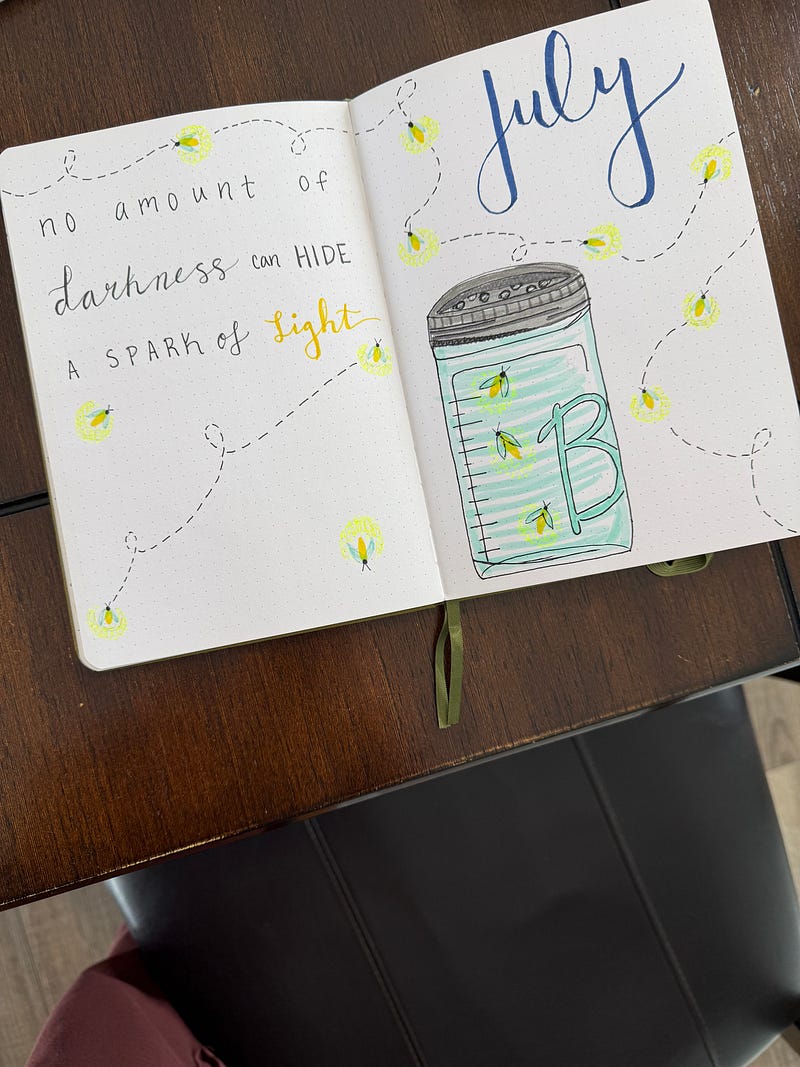 no amount of
darkness can HIDE
A SPARK of Light
July
B